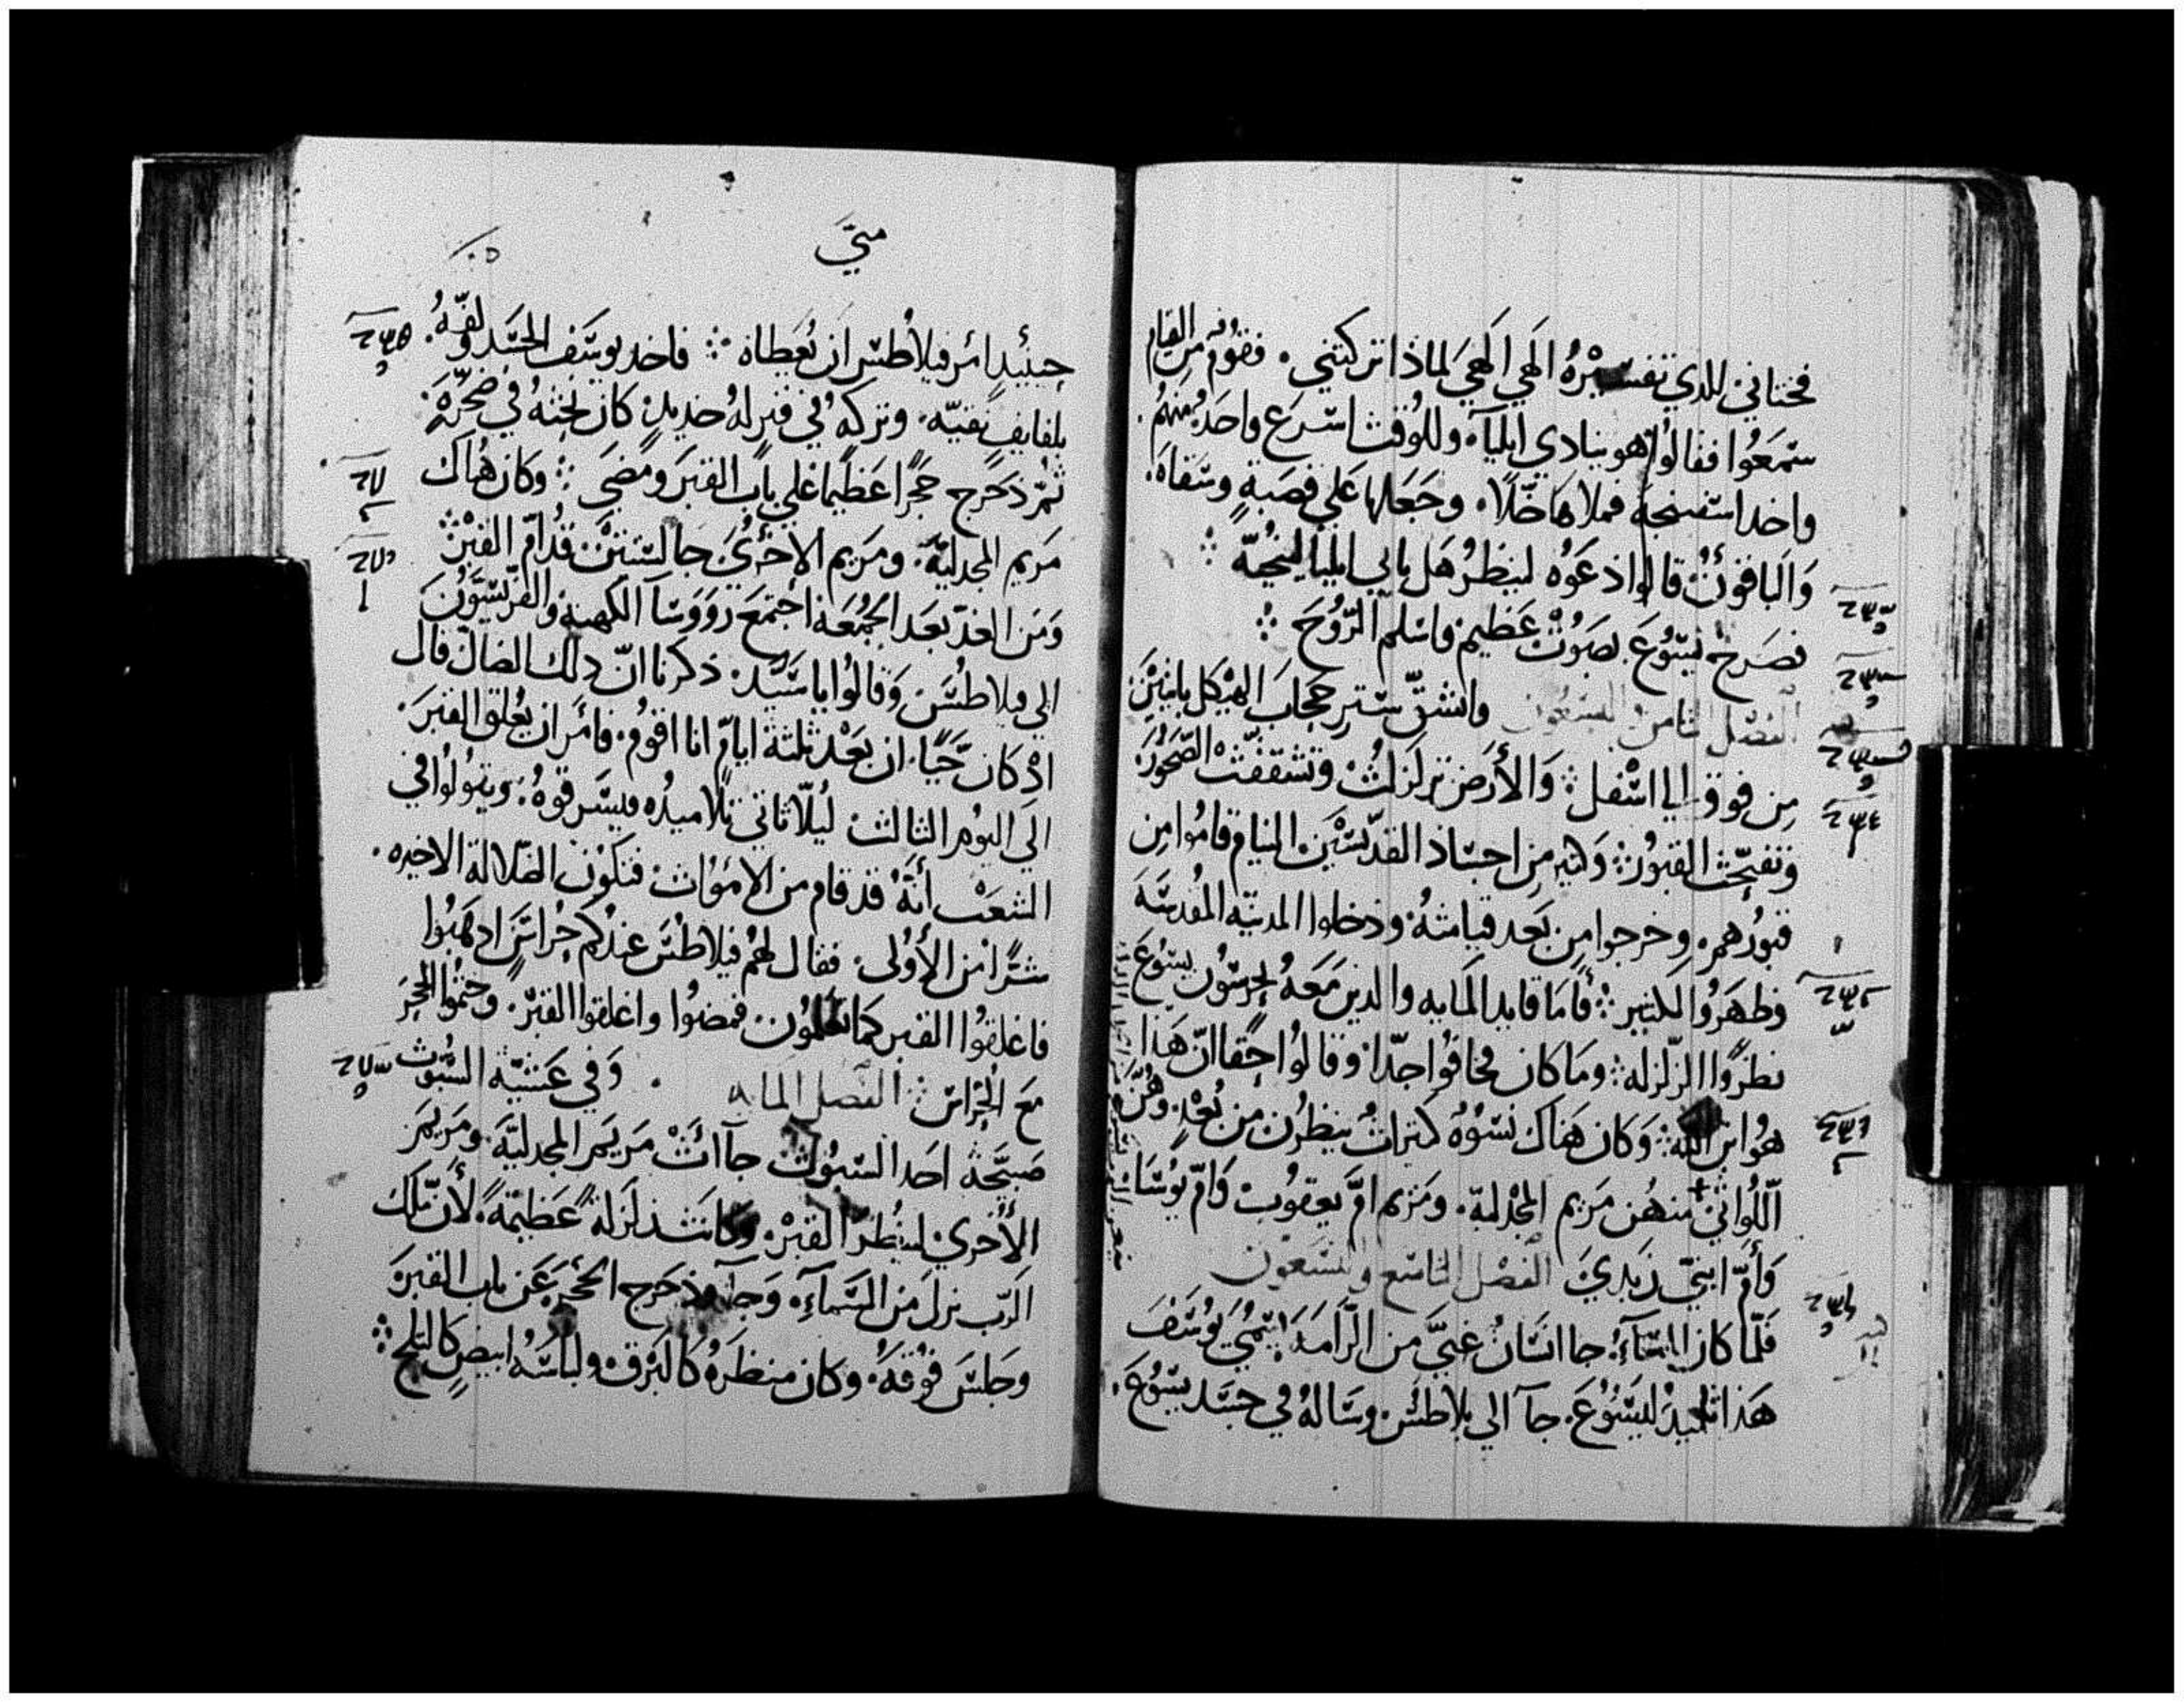 فختاني للدي تفسيره الهي الهي لماذا تركتني. فقوم من القيام
سمعوا فقالوا هو ينادي ايليآ. وللوقت اسرع واحد منهم.
واخد اسفنجة فملاها خلًا. وجعلها على قصبة وسقاه.
والباقون قالوا ادعوه لينظر هل ياتي ايليا لينجيه
فصرخ يسوع بصوت عظيم واسلم الروح
الفصل الثامن والتسعون وانشق ستر حجاب الهيكل باثنين
من فوق الي اسفل وَالأرض تزلزلت وتشققت الصخور
وتفتحت القبور وكثير من اجساد القديسين النيام قاموا من
قبورهم. وخرجوا من بعد قيامته ودخلوا المدينه المقدسه
وظهروا لكثير فأما قايد المايه والدين معه يحرسون يسوع
نظروا الزلزله وما كان فخافوا جدًا وقالوا حقا انّ هذا
هو ابن الله وكان هناك نسوه كثيرات ينظرن من بعد. وهن
اللواتي منهن مريم المجدلية. ومريم ام يعقوب وام يوسا
وأم ابني زبدي الفصل التاسع والتسعون
فلما كان المسآء جا انسان غني من الرامه يسمي يوسف
هذا تلميد ليسوع. جآ الي بلاطس وساله في جسد يسوع.
متي
حينيد امر فيلاطس ان يعطاه فاخد يوسف الجسد ولفه.
بلفايف نقيه. وتركه في قبر له جديد كان نحته في صخره.
ثم دحرج حجرًا عظيما علي باب القبر ومضي وكان هناك
مريم المجدلية. ومريم الاخري جالستين قدام القبر
ومن الغد بعد الجمعة اجتمع رووسآ الكهنة والفريسيون
الي فيلاطس وقالوا يا سيد. ذكرنا ان دلك الضال قال
اد كان حيًا. ان بعد ثلثة ايام انا اقوم. فامر ان يغلق القبر.
الي اليوم الثالث ليلا تاتي تلاميده فيسرقوه. ويقولوا في
الشعب أنه قد قام من الاموات فتكون الضلالة الاخيره.
شرًا من الأولى. فقال لهم فيلاطس عندكم حراس ادهبوا
فاغلقوا القبر كما تعلمون. فمضوا واغلقوا القبر. وختموا الحجر
مع الحراس الفصل المايه وفي عشية السبوت
صبحة احد السبوت جاات مريم المجدلية. ومريم
الأخري لينظرا القبر. وكانت زلزلة عظيمة. لأن ملك
الرب نزل من السمآء. وجآ ودحرج الحجر عن باب القبر
وجلس فوقه. وكان منظره كالبرق ولباسه ابيض كالثلج